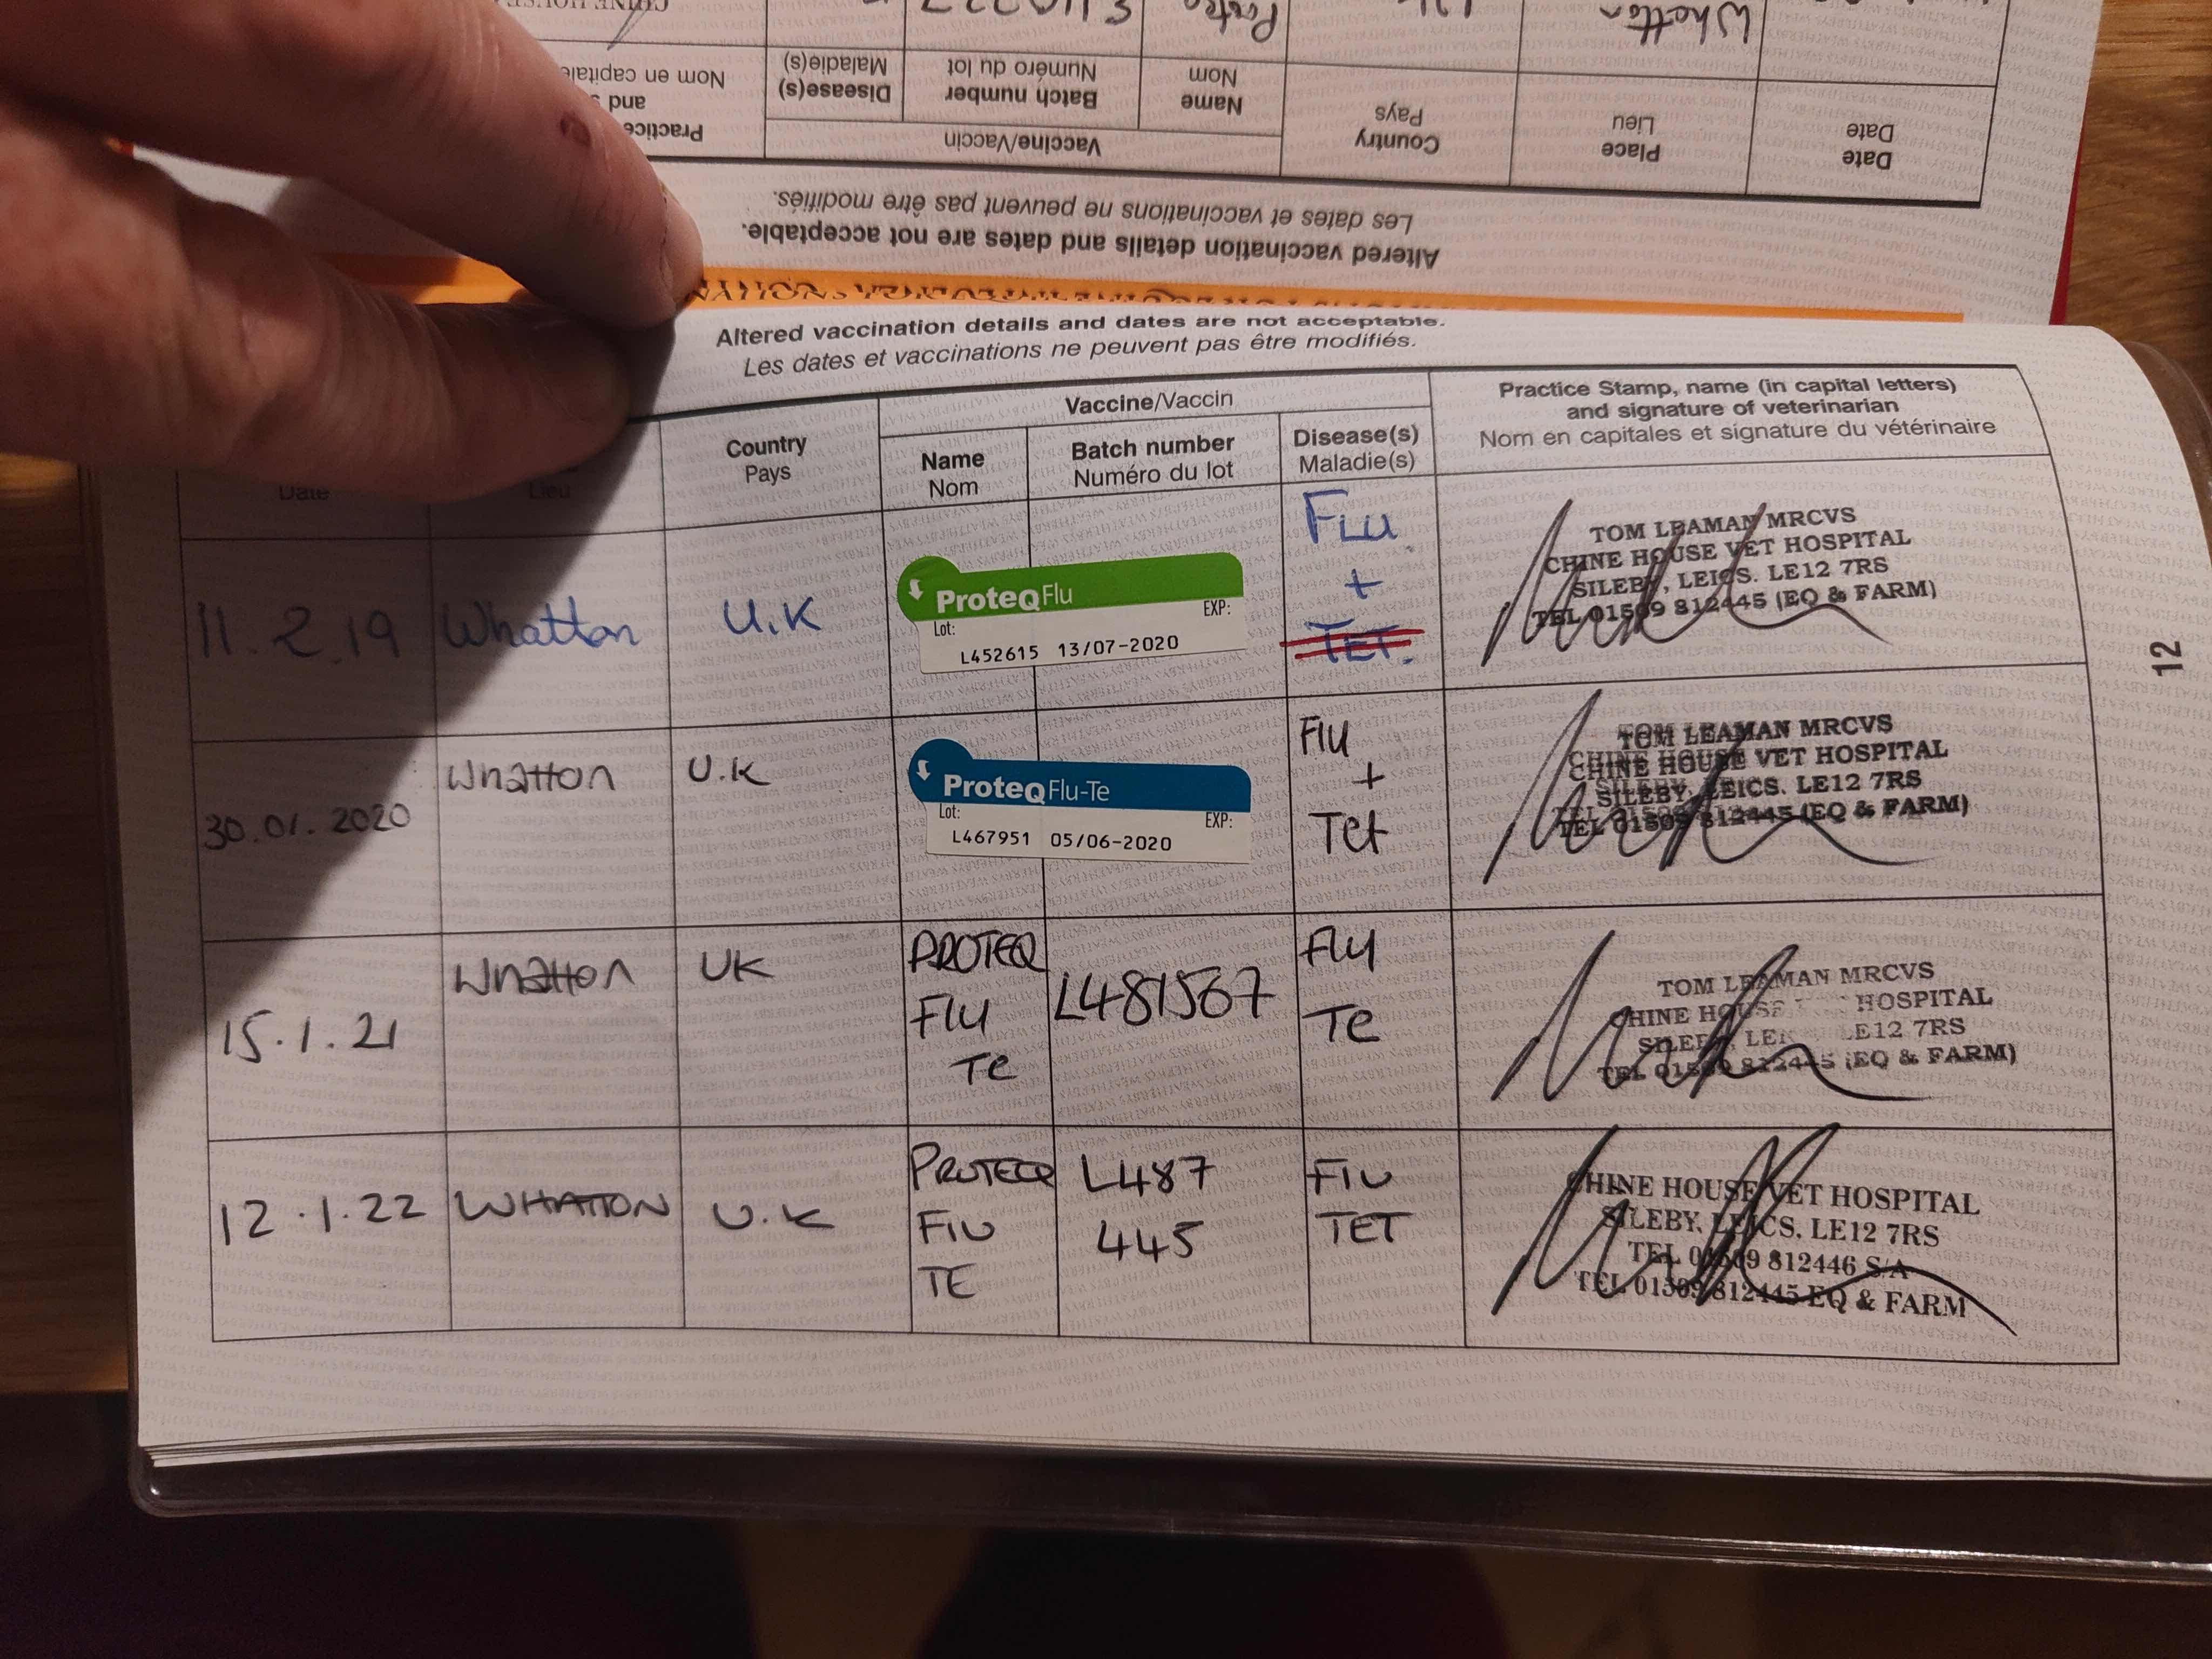 Whatton
Date
Date
Place
Lieu
Country
Pays
Vaccine/Vaccin
Name
Nom
Batch number
Numéro du lot
Disease(s)
Maladie(s)
Practice
and
Nom en capitale
Altered vaccination details and dates are not acceptable.
Les dates et vaccinations ne peuvent pas être modifiés.
Altered vaccination details and dates are not acceptable.
Les dates et vaccinations ne peuvent pas être modifiés.
Date
Lieu
Country
Pays
Vaccine/Vaccin
Name
Nom
Batch number
Numéro du lot
Disease(s)
Maladie(s)
Practice Stamp, name (in capital letters)
and signature of veterinarian
Nom en capitales et signature du vétérinaire
11.2.19
Whatton
U.K
ProteqFlu
Lot:
EXP:
L452615 13/07-2020
FLU
+
TET.
TOM LEAMAN MRCVS
CHINE HOUSE VET HOSPITAL
SILEBY, LEICS. LE12 7RS
TEL 01509 812445 (EQ & FARM)
30.01.2020
Whatton
U.K
ProteqFlu-Te
Lot:
EXP:
L467951 05/06-2020
Flu
+
Tet
TOM LEAMAN MRCVS
CHINE HOUSE VET HOSPITAL
SILEBY, LEICS. LE12 7RS
TEL 01509 812445 (EQ & FARM)
15.1.21
Whatton
UK
PROTEQ
Flu
Te
L481567
Flu
Te
TOM LEAMAN MRCVS
CHINE HOUSE HOSPITAL
SILEBY, LEI LE12 7RS
TEL 01509 812445 (EQ & FARM)
12.1.22
WHATTON
U.K
PROTEQ
FLU
TE
L487
445
FLU
TET
CHINE HOUSE VET HOSPITAL
SILEBY, LEICS. LE12 7RS
TEL 01509 812446 S/A
TEL 01509 812445 EQ & FARM
12